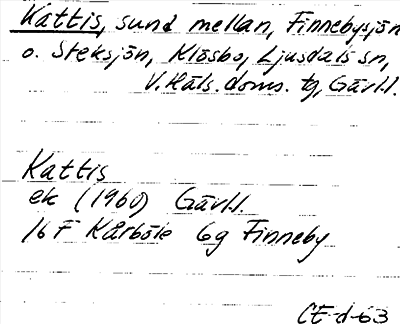 Kattis, sund mellan, Finnebysjön
o. Steksjön, Klösbo, Ljusdals sn,
V. Häls. doms. tg, Gävl.l.
Kattis
ek (1960) Gävl.l
16 F Kårböle 6g Finneby
CE-d-63